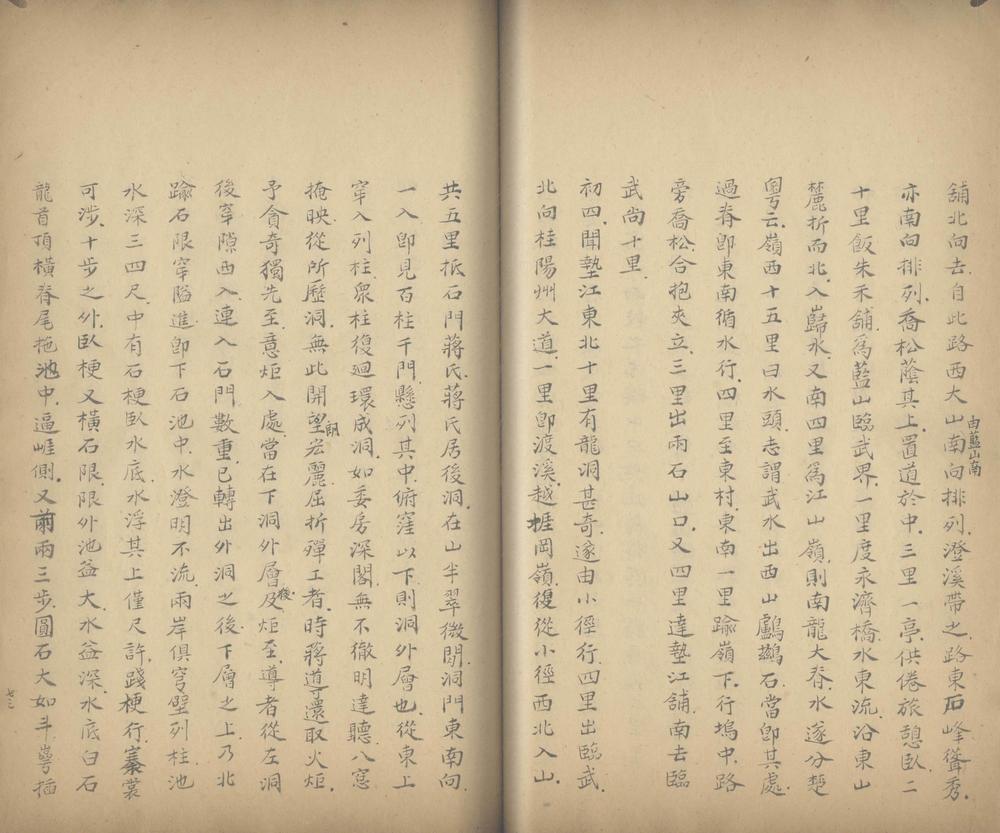 舖北向去自此路西大山南向排列澄溪帶之路東石峰聳秀
由藍山南
亦南向排列喬松蔭其上置道於中三里一亭供倦旅憩臥二
十里飯朱禾舖為藍山臨武界一里度永濟橋水東流沿東山
麓折而北入巋水又南四里爲江山嶺則南龍大脊水遂分楚
粵云嶺西十五里曰水頭志謂武水出西山鸕鷀石當卽其處
過脊卽東南循水行四里至東村東南一里踰嶺下行塢中路
旁喬松合抱夾立三里出兩石山口又四里達墊江舖南去臨
武尚十里
初四聞墊江東北十里有龍洞甚奇遂由小徑行四里出臨武
北向桂陽州大道一里卽渡溪越岡嶺復從小徑西北入山
共五里抵石門蔣氏蔣氏居後洞在山半翠微間洞門東南向
一入卽見百柱千門懸列其中俯窪以下則洞外層也從東上
穿入列柱衆柱復迴環成洞如委房深閣無不徹明達聽八窓
掩映從所歷洞無此開望宏麗屈折殫工者時蔣導還取火炬
朗
予貪奇獨先至意炬入處當在下洞外層及炬至導者從左洞
後
後穿隙西入連入石門數重已轉出外洞之後下層之上乃北
踰石限穿隘進卽下石池中水澄明不流兩岸俱穹壁列柱池
水深三四尺中有石梗臥水底水浮其上僅尺許踐梗行褰裳
可涉十步之外臥梗又橫石限限外池益大水益深水底白石
龍首頂橫脊尾拖池中逼崖側又前兩三步圓石大如斗萼插